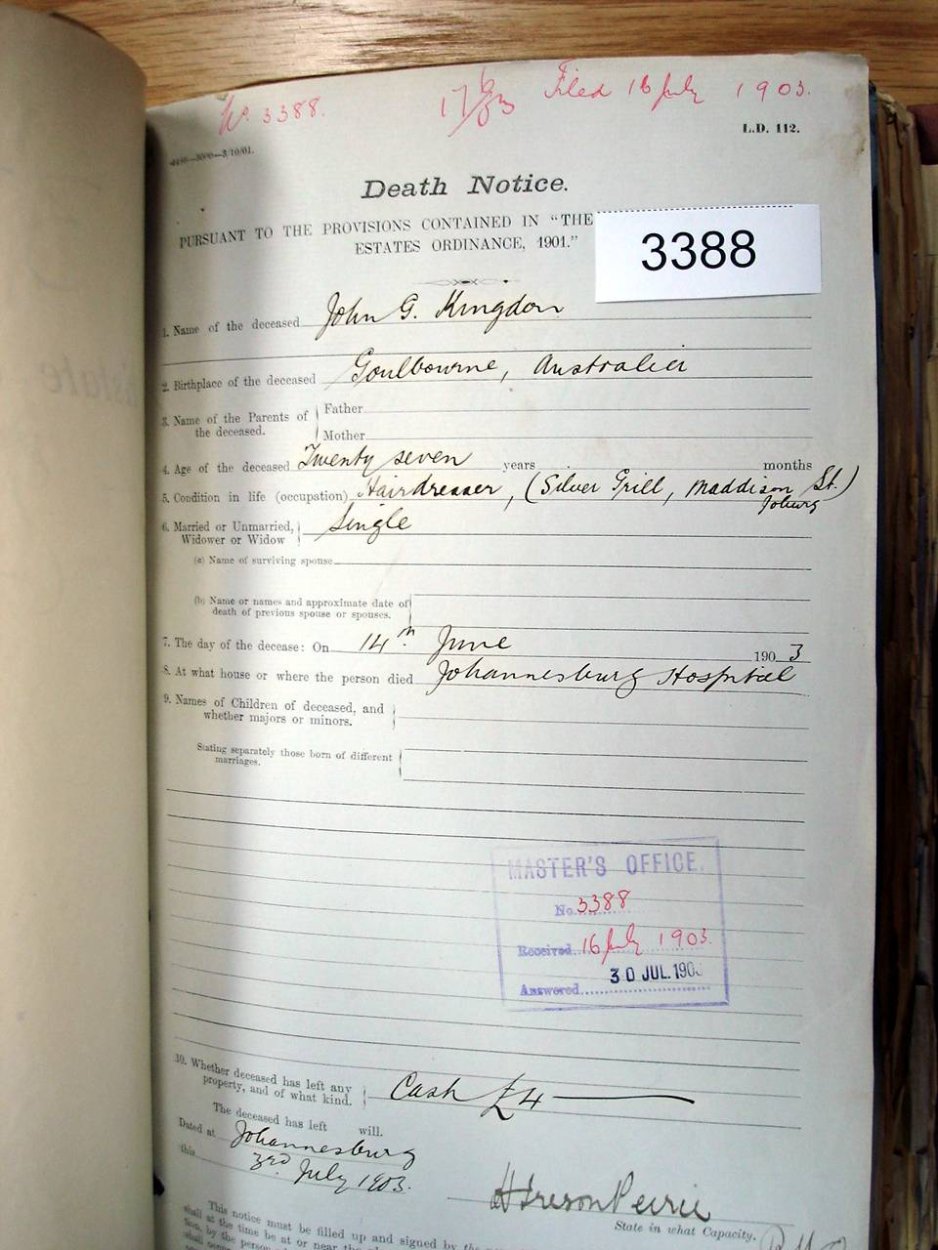 No. 3388. 17/6/03 Filed 16 July 1903.
L.D. 112.
Death Notice.
PURSUANT TO THE PROVISIONS CONTAINED IN "THE
ESTATES ORDINANCE, 1901."
3388
1. Name of the deceased John G. Kingdon
2. Birthplace of the deceased Goulbourne, Australia
3. Name of the Parents of the deceased. Father
Mother
4. Age of the deceased Twenty seven years months
5. Condition in life (occupation) Hairdresser, (Silver Grill, Maddison St.)
Joburg
6. Married or Unmarried, Widower or Widow Single
(a) Name of surviving spouse
(b) Name or names and approximate date of
death of previous spouse or spouses.
7. The day of the decease: On 14th June 1903
8. At what house or where the person died Johannesburg Hospital
9. Names of Children of deceased, and
whether majors or minors.
Stating separately those born of different
marriages.
MASTER'S OFFICE.
No. 3388
Received 16 July 1903.
30 JUL. 190
Answered
10. Whether deceased has left any
property, and of what kind. Cash £4
The deceased has left will.
Dated at Johannesburg
this 3rd July 1903.
State in what Capacity.
This notice must be filled up and signed by the
shall at the time be at or near the
by the person